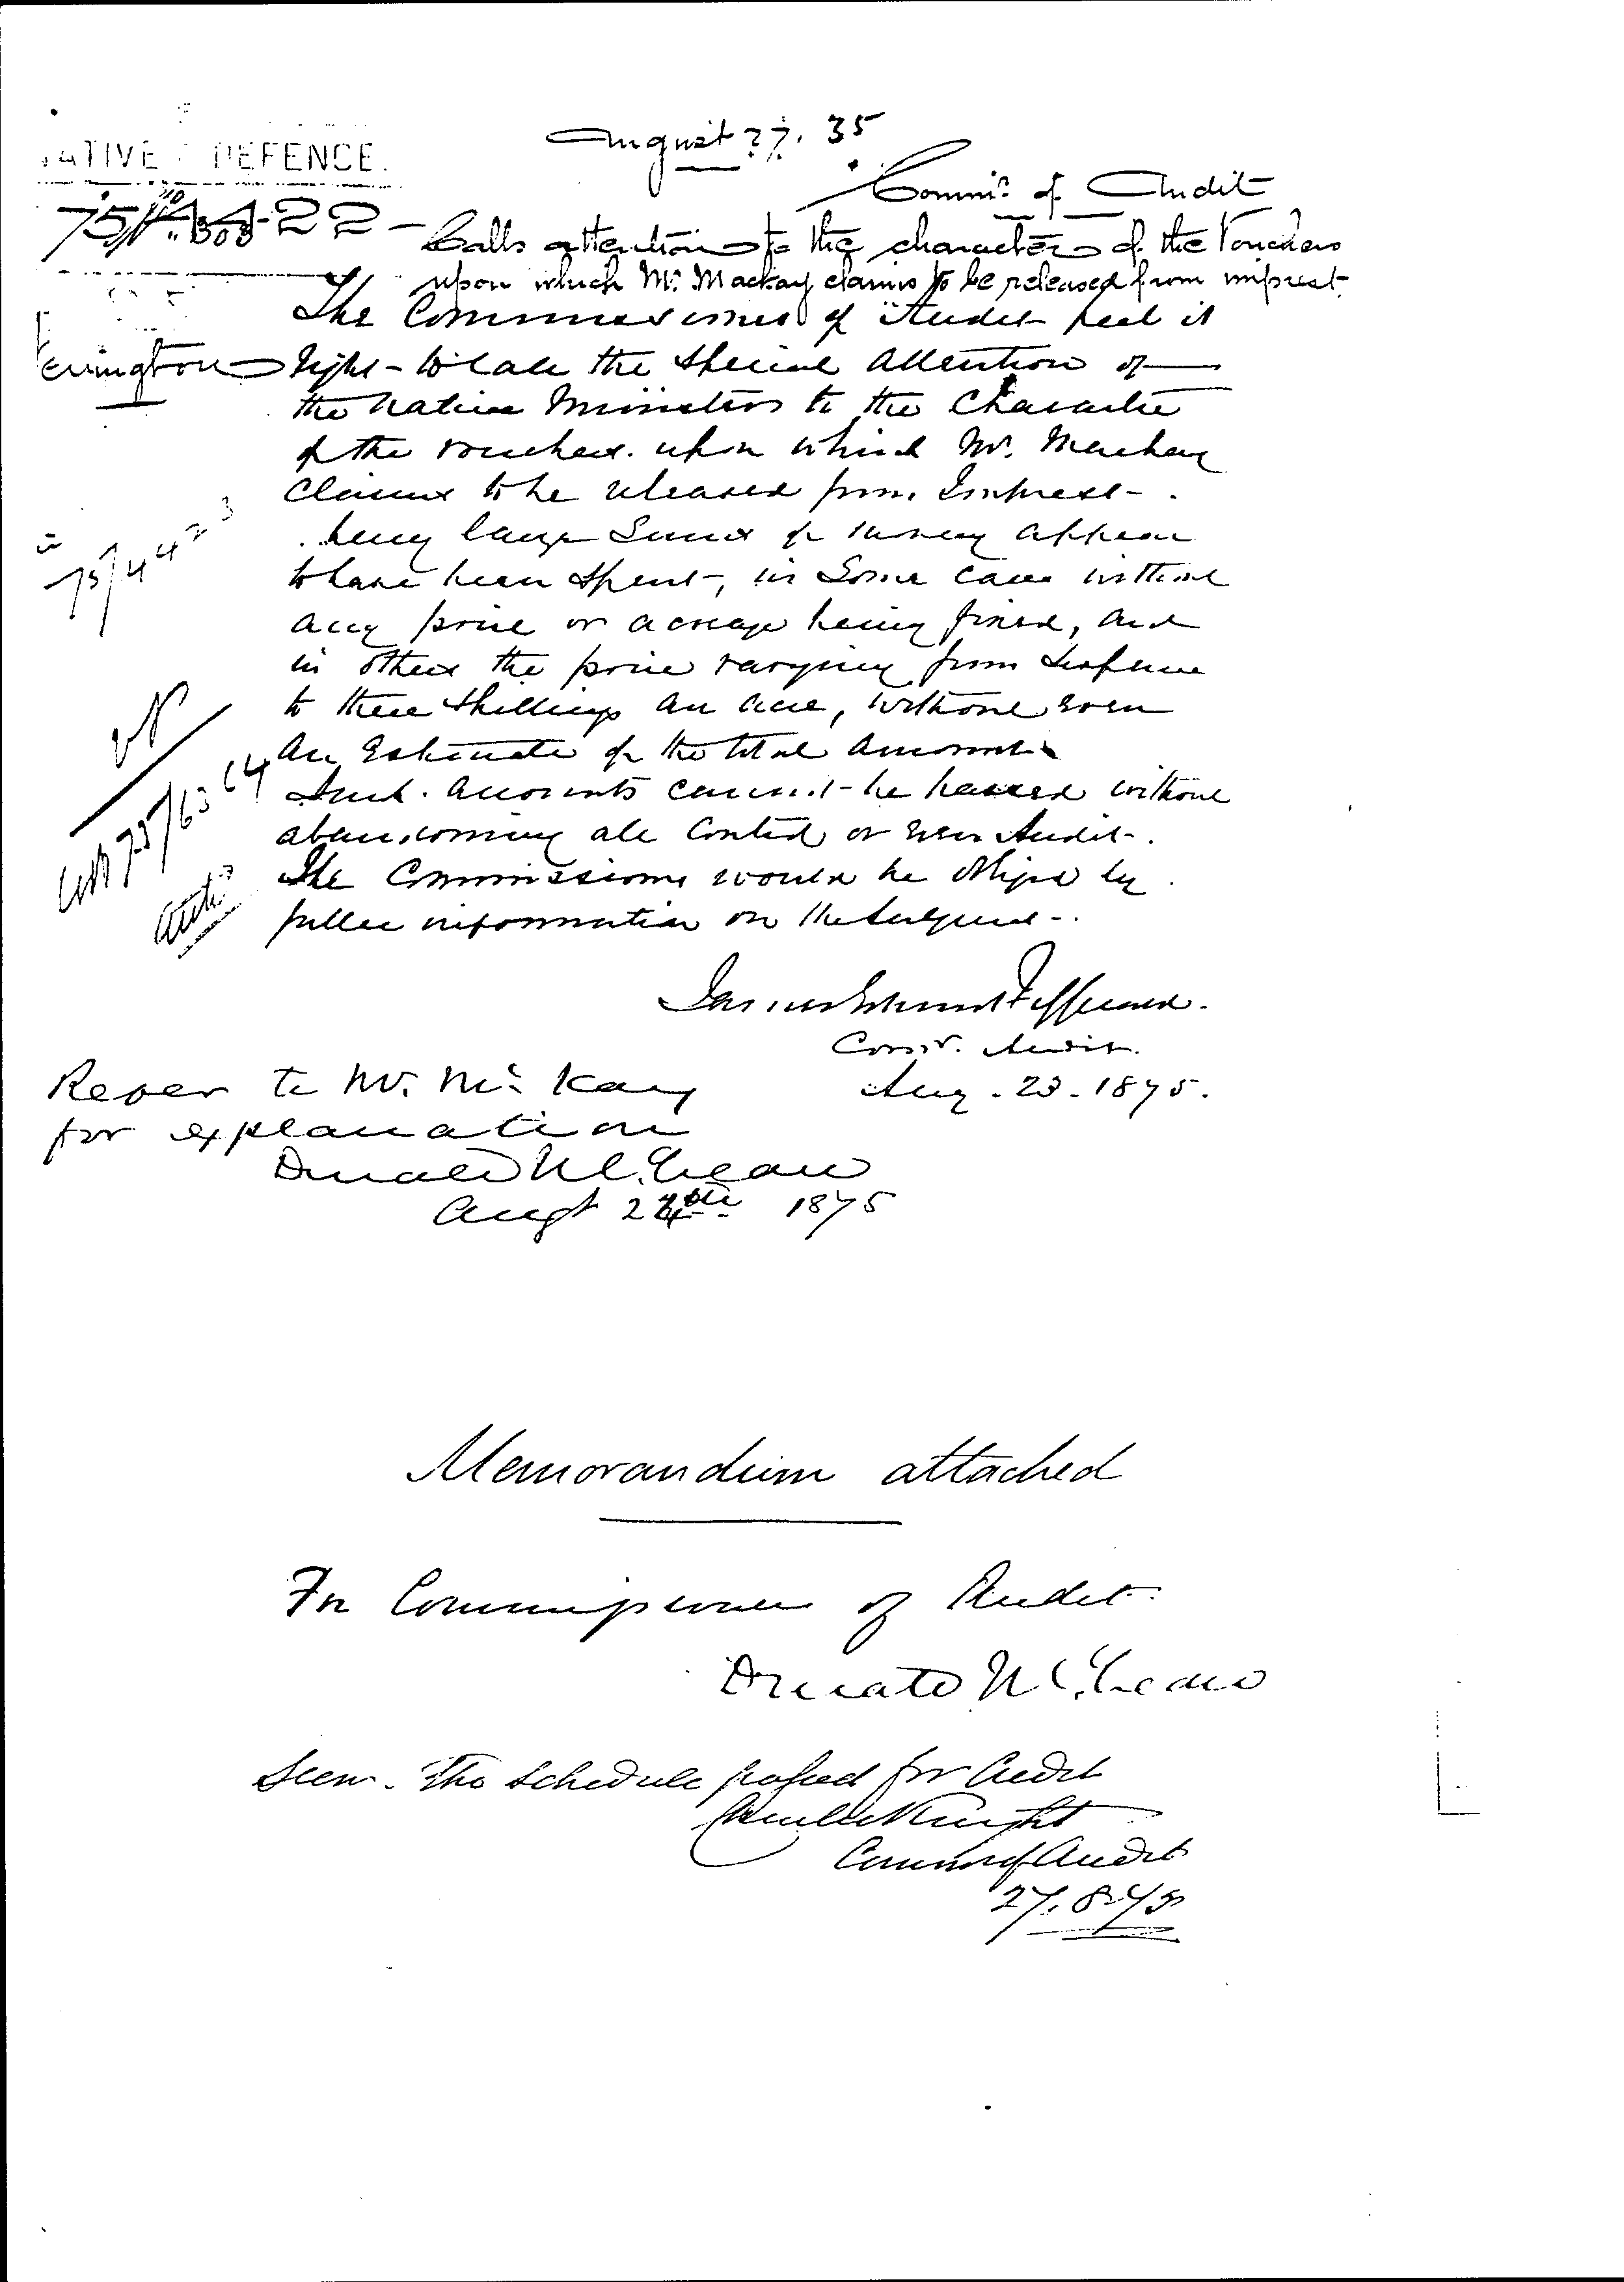 NATIVE & DEFENCE.
August 27. 75
Commrs of Audit
75/4422 - Calls attention to the character of the Vouchers
upon which Mr. Mackay claims to be released from imprest
The Commissioners of Audit feel it
right to call the special attention of
the Native Minister to the Character
of the vouchers upon which Mr. Mackay
claims to be released from Imprest.
Very large Sums of money appear
to have been spent, in Some cases without
any price or acreage being fixed, and
in others the price varying from Sixpence
to three shillings an acre, without even
An Estimate of the total amount.
Such accounts cannot be passed without
abandoning all Control or even Audit.
The Commissioners would be obliged by
fuller information on the subject.
in
75/4423
James Edward FitzGerald.
Comr. Audit.
Aug. 23. 1875.
Refer to Mr. McKay
for explanation
Donald McLean
Augt 24th 1875
Memorandum attached
For Commissioners of Audit.
Donald McLean
Seen. The Schedule passed for Audit
Charles Knight
Commr of Audit
27.8.75